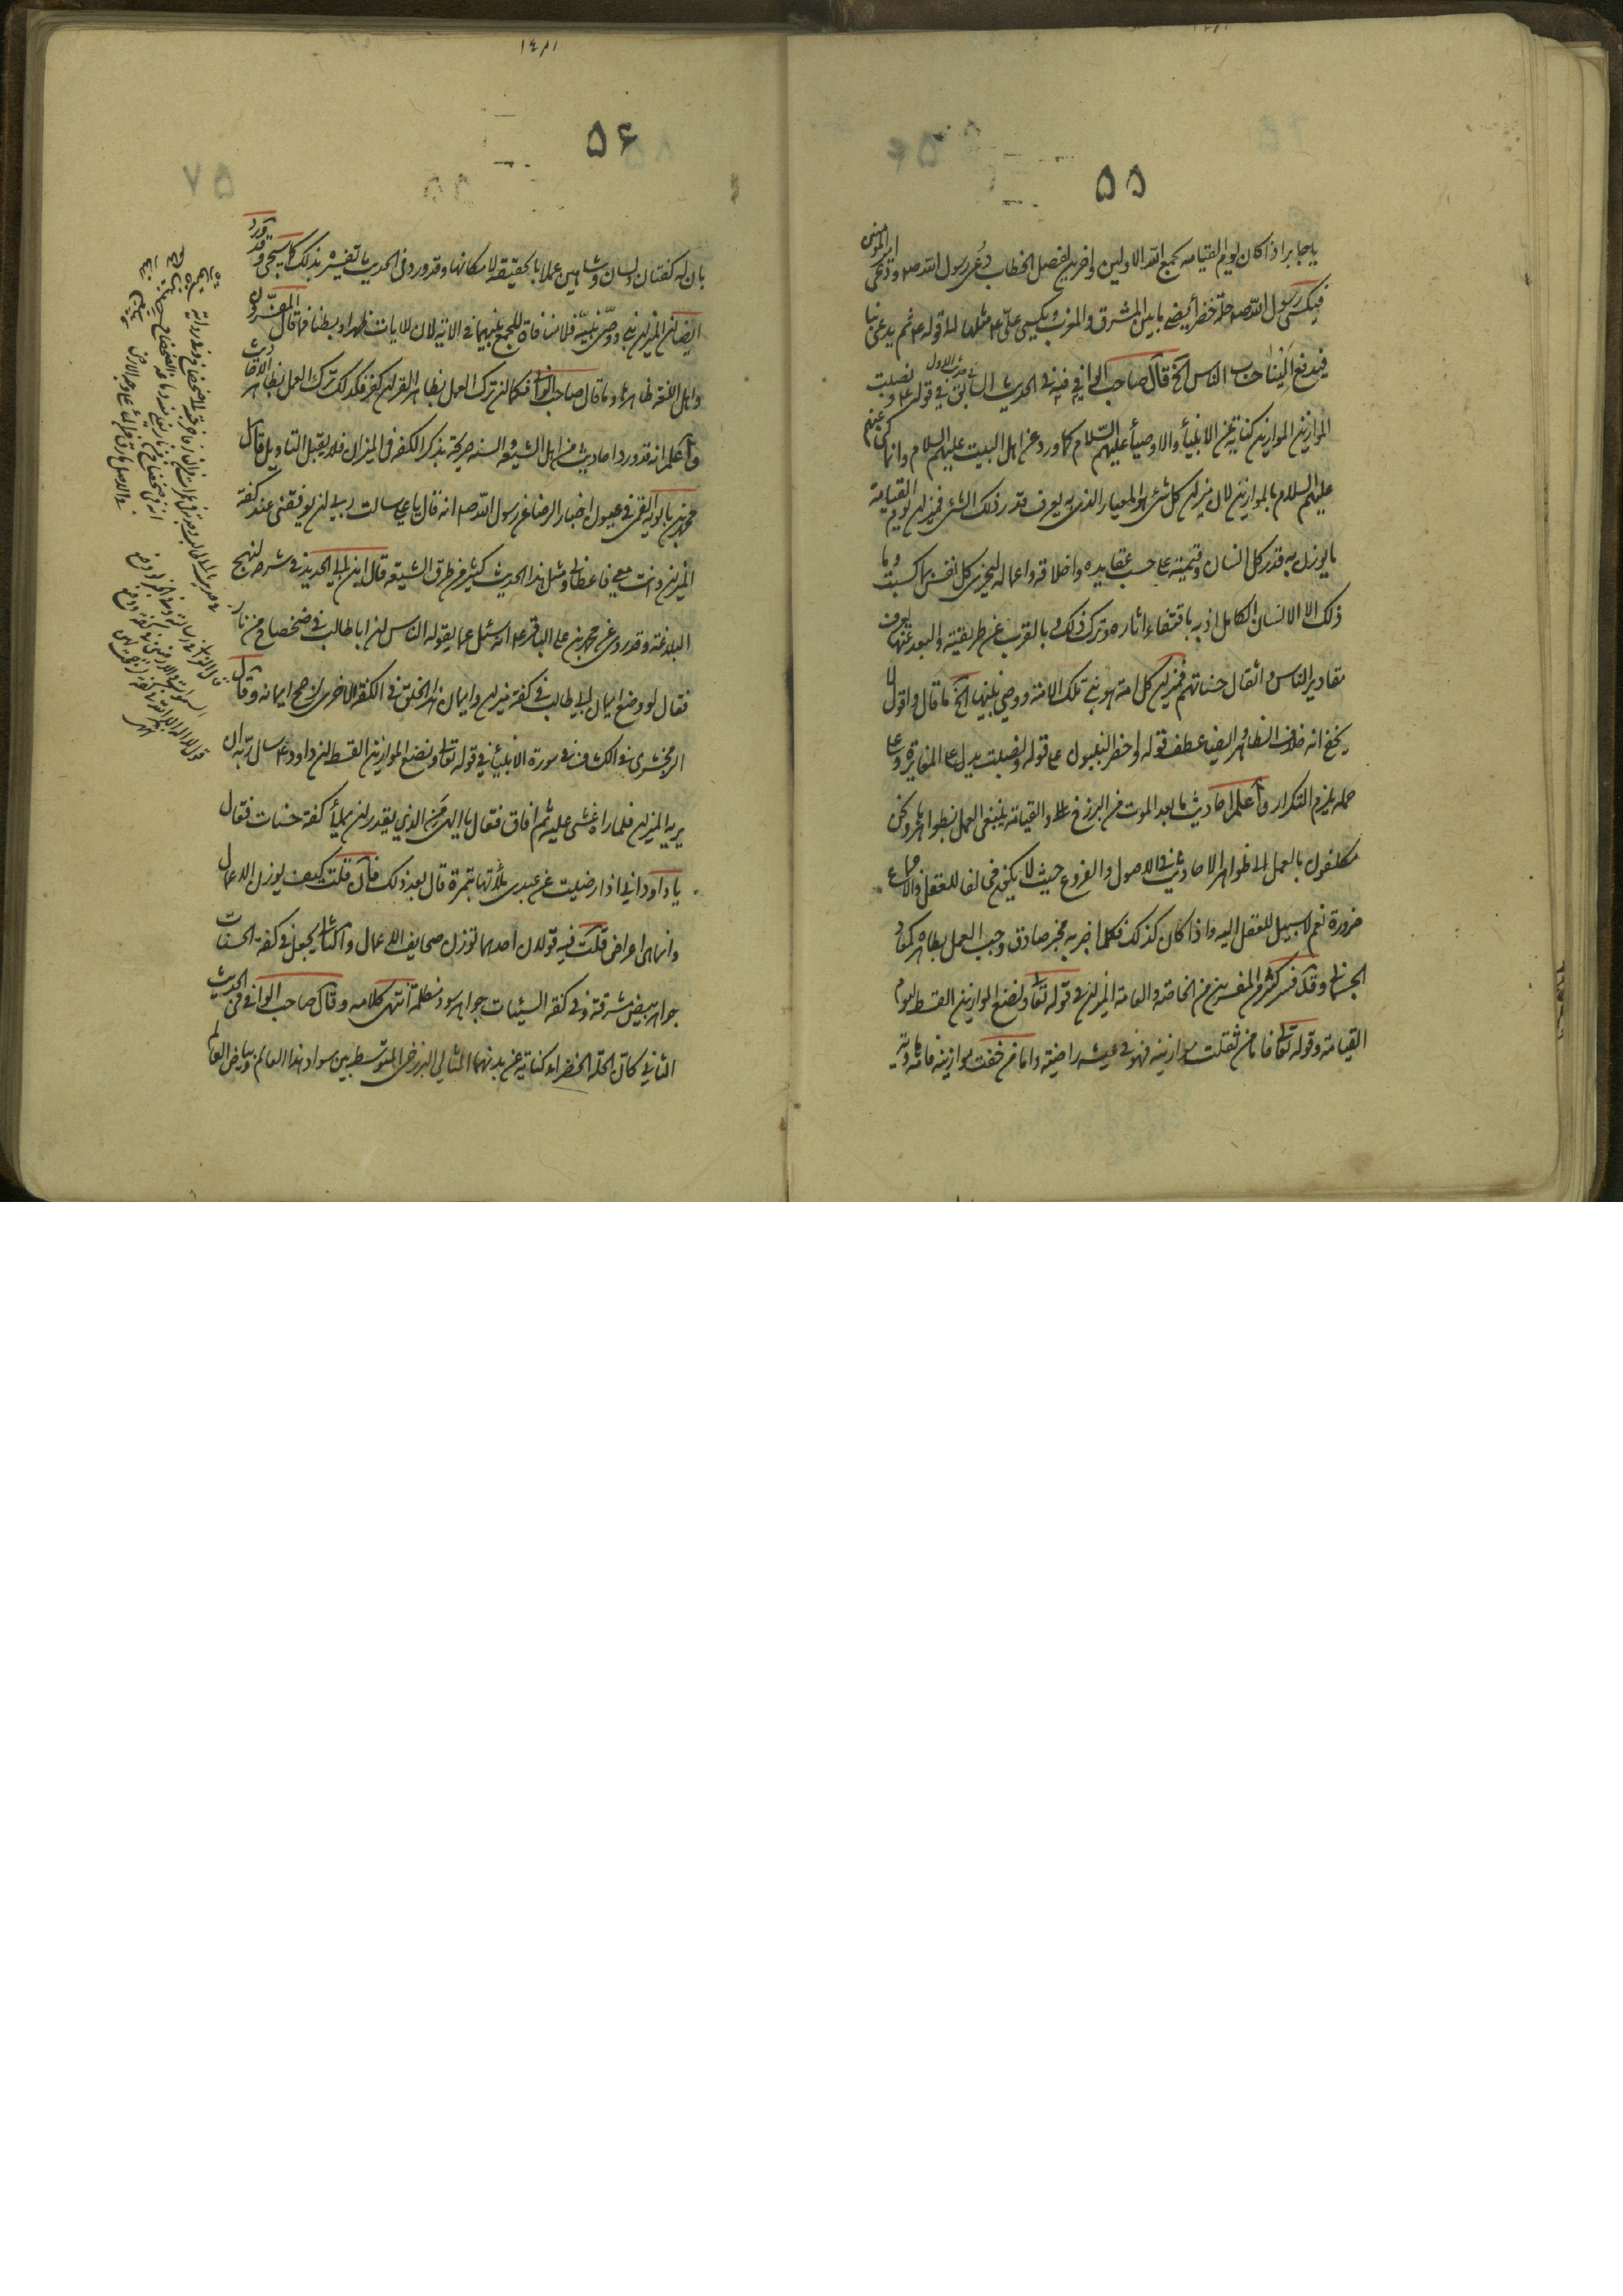 ۵۵
يا جابر اذا كان يوم القيامه يجمع الله الاولين واخرين لفصل الخطاب دُعى رسول الله صم ودُعى امير المؤمنين
فيكسى رسول الله صم حلة خضراء يضئ ما بين المشرق والمغرب ويكسى على ع مثلها الى قوله ع ثم يدعى بنا
فيدفع الينا حساب الناس الخ قال صاحب الوافي فيه في الحديث السابق في قوله ع ونصبت
الموازين الموازين كناية عن الانبياء والاوصياء عليهم السلام كما ورد عن اهل البيت عليهم السلام وانما كنى عنهم
عليهم السلام بالموازين لان ميزان كل شئ هو المعيار الذي به يعرف قدر ذلك الشئ فميزان يوم القيامة
ما يوزن به قدر كل انسان وقيمته على حسب عقايده واخلاقه واعماله ليجزى كل نفس بما كسبت وما
ذلك الا الانسان الكامل اذ به باقتفاء اثاره وترك ذلك وبالقرب من طريقته والبعد عنها يعرف
مقادير الناس واثقال حسناتهم فميزان كل امة هو نبي تلك الامة ووصي نبيها الخ ما قال واقول لا
يخفى انه خلاف الظاهر وايضا عطف قوله واحضر النبيون على قوله ونصبت يدل على المغايرة وعلى
حمله يلزم التكرار واعلم احاديث ما بعد الموت من البرزخ والقيامة ينبغي العمل بظواهرها ونحن
مكلفون بالعمل الى ظواهر الاحاديث في الاصول والفروع حيث لا يكون مخالفا للعقل والاجماع
ضرورة نعم لا سبيل للعقل اليه واذا كان كذلك فكلما اخبر به مخبر صادق وجب العمل بظاهره كالمعاد
الجسماني وقد فسر اكثر المفسرين من الخاصة والعامة الميزان في قوله تعالى ونضع الموازين القسط ليوم
القيامة وقوله تعالى فاما من ثقلت موازينه فهو في عيشة راضية واما من خفت موازينه فامه هاوية
۵۶
بان له كفتان ولسان وشاهين عملا بالحقيقة لامكانها وقد ورد في الحديث ما تفسيره بذلك كما سيجئ وقد ورد
ايضا ان الميزان نبي ووصى نبيه فلا منافاة للجمع بينهما في الاية لان للايات ظهرا وبطنا فما قال المفسرون
واهل اللغة ظاهرها وما قال صاحب الوافي فكما ان ترك العمل بظاهر القران كفر فكذلك ترك العمل بظاهر الاحاديث
واعلم انه قد ورد احاديث من اهل الشيعة والسنة صريحة بذكر الكفة في الميزان فلا يقبل التاويل قال
محمد بن بابويه القمي في عيون اخبار الرضا عن رسول الله صم انه قال يا على سالت ربى ان يوقفني عند كفة
الميزان وانت معي فاعطاني ومثل هذا الحديث كثير من طرق الشيعة قال ابن ابي الحديد في شرحه لنهج
البلاغة وقد روى عن محمد بن على الباقر ع انه سئل عما يقوله الناس ان ابا طالب في ضحضاح من نار
فقال لو وضع ايمان ابي طالب في كفة ميزان وايمان هذا الخلق في الكفة الاخرى لرجح ايمانه وقال
الزمخشرى في الكشاف في سورة الانبياء في قوله تعالى ونضع الموازين القسط ان داود ع سال ربه ان
يريه الميزان فلما راه غشى عليه ثم افاق فقال يا الهى من الذي يقدر ان يملأ كفته حسنات فقال
يا داود اني اذا رضيت عن عبدى ملأتها بتمرة قال بعد ذلك فان قلت كيف يوزن الاعمال
وانما هى اعراض قلت فيه قولان احدهما توزن صحايف الاعمال والثاني يجعل في كفة الحسنات
جواهر بيض مشرقة وفي كفة السيئات جواهر سود مظلمة انتهى كلامه وقال صاحب الوافي في الحديث
الثاني كان الحلة الخضراء كناية عن بدنهما المثالي البرزخي المتوسط بين سواد هذا العالم وبياض العالم